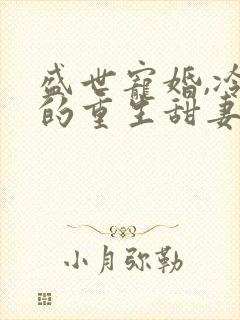 盛世寵婚,冷
的重生甜妻
小月弥勒